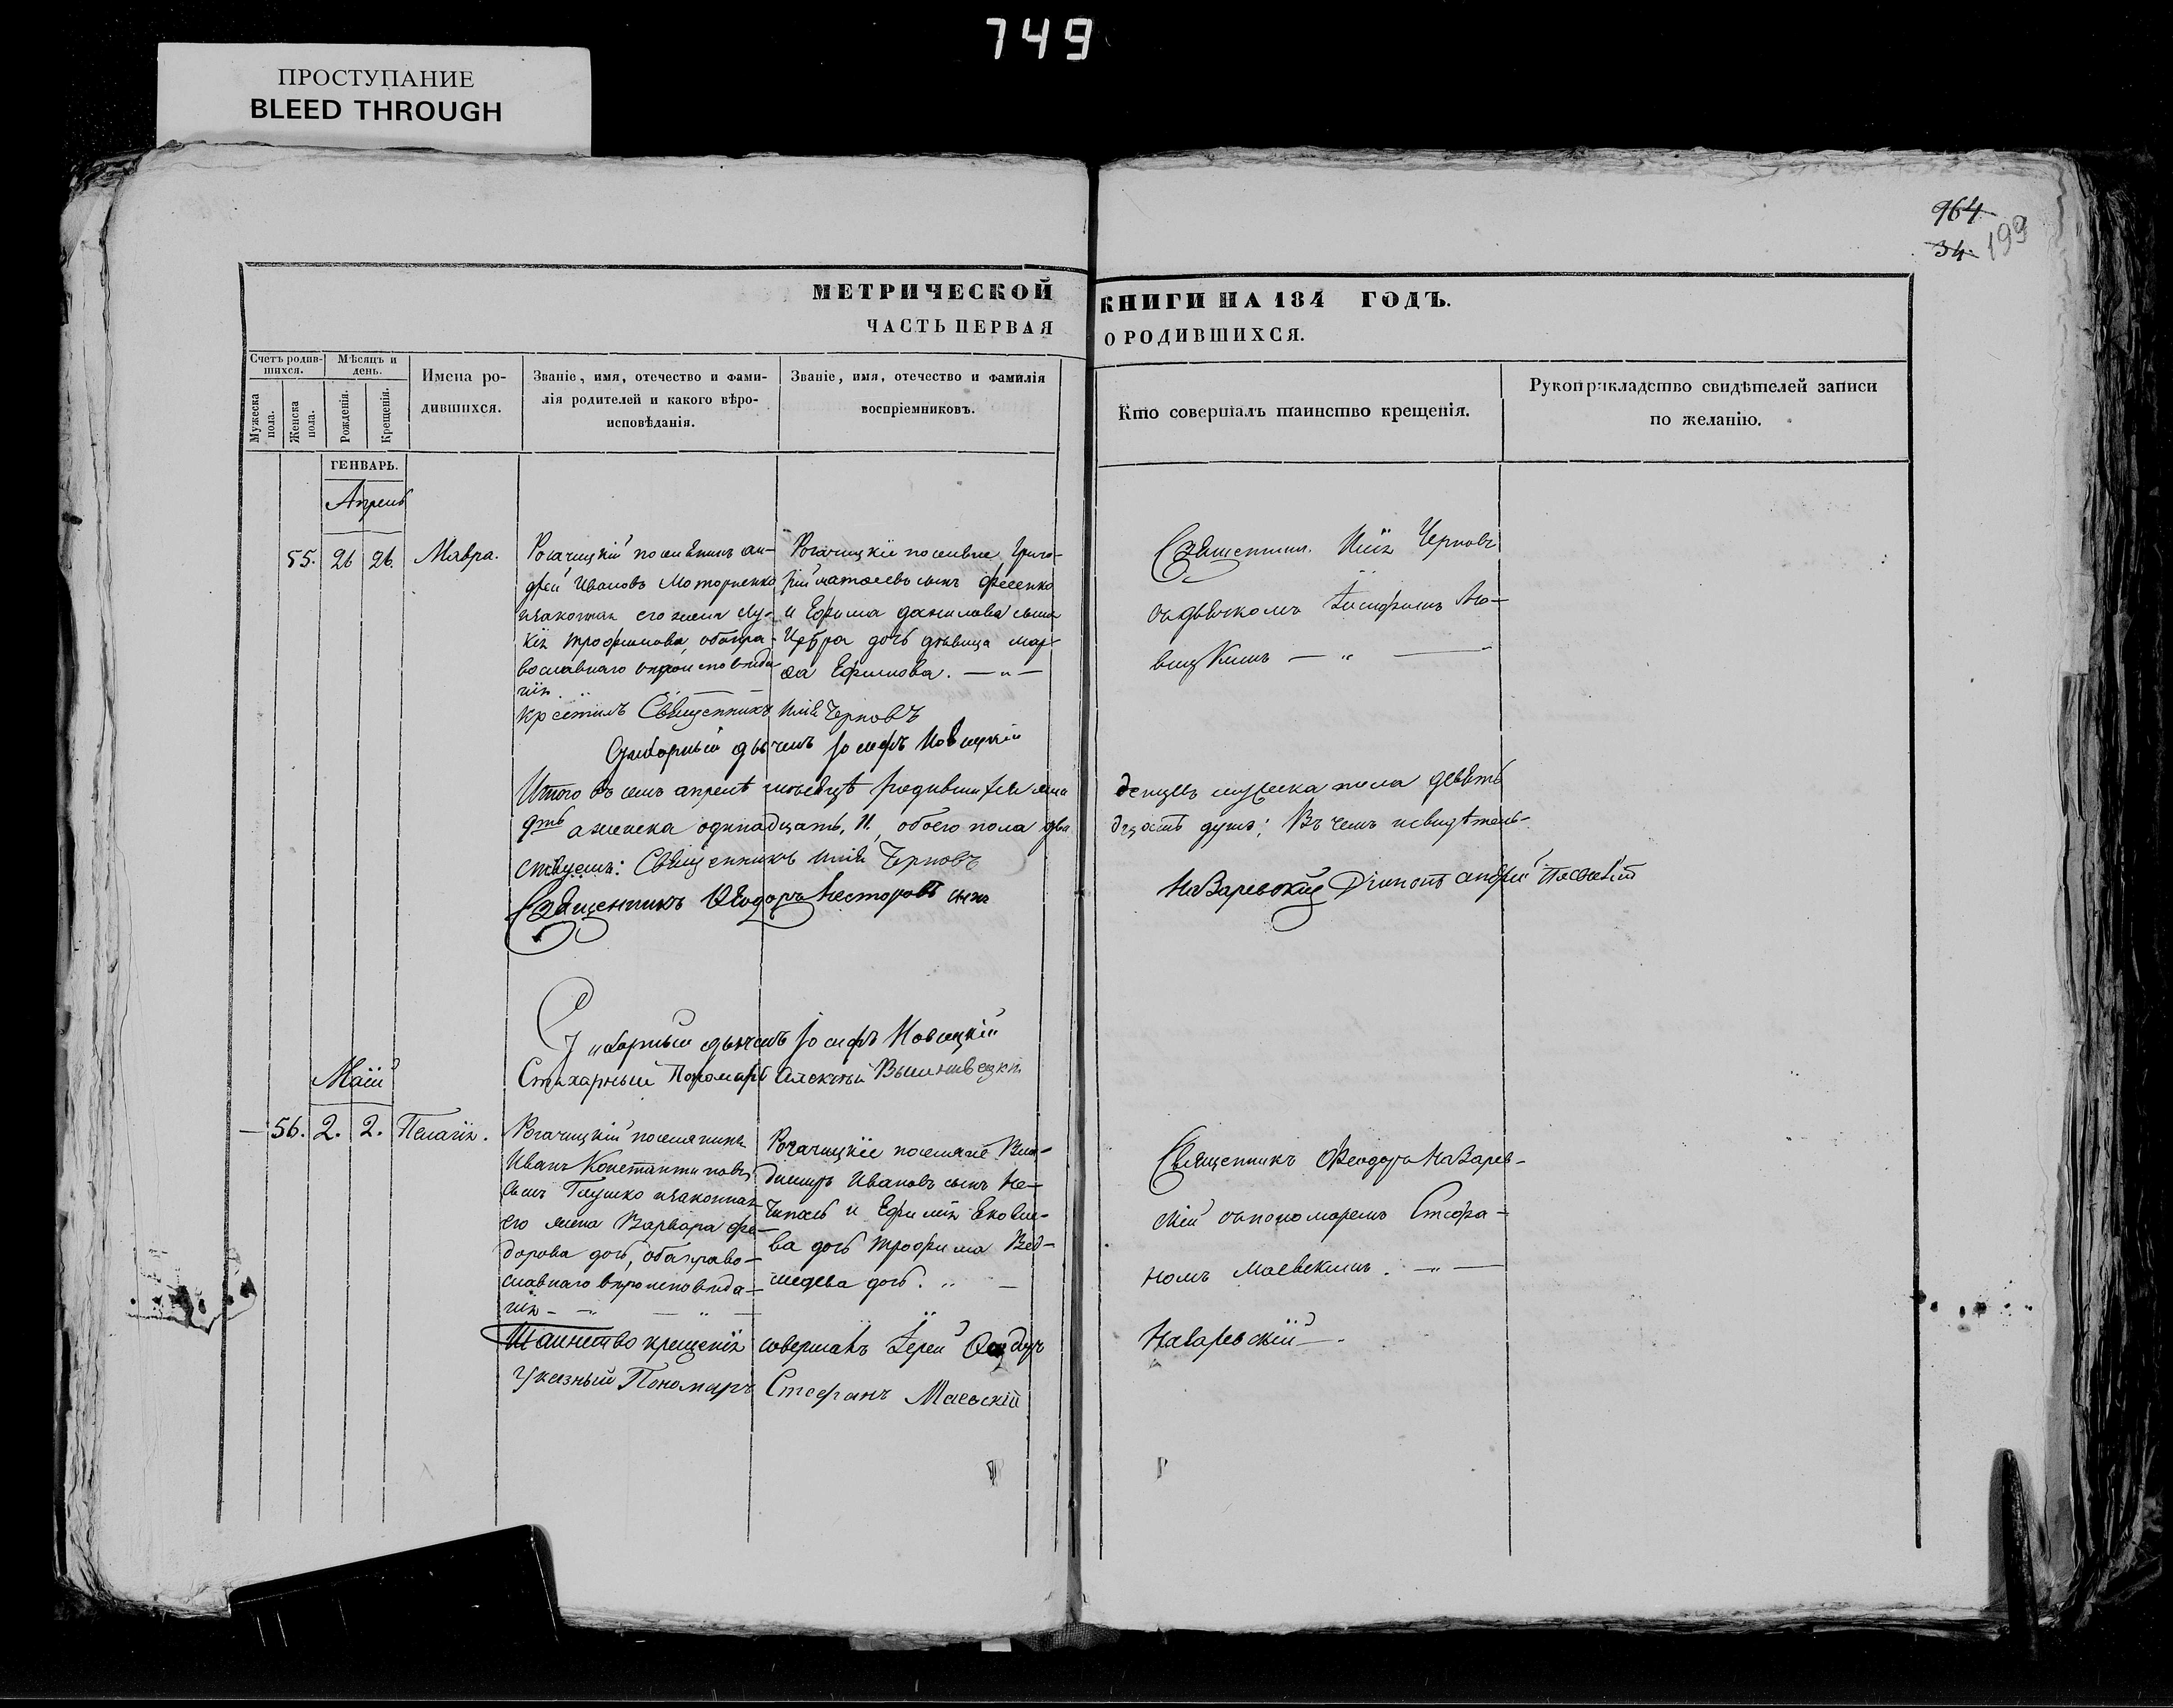 749
ПРОСТУПАНИЕ
BLEED THROUGH
964
34. 199
МЕТРИЧЕСКОЙ КНИГИ НА 184 ГОДЪ.
ЧАСТЬ ПЕРВАЯ О РОДИВШИХСЯ.
Счетъ родив-
шихся.
Мужеска
пола.
Женска
пола.
Мѣсяцъ и
день.
Рожденія.
Крещенія.
Имена ро-
дившихся.
Званіе, имя, отечество и фами-
лія родителей и какого вѣро-
исповѣданія.
Званіе, имя, отечество и фамилія
воспріемниковъ.
Кто совершалъ таинство крещенія.
Рукоприкладство свидѣтелей записи
по желанію.
ГЕНВАРЬ.
Апрель
55. 26 26. Мавра.
Рогачицкій поселянинъ ан-
дрей Ивановъ Моторненко
изаконная его жена Лу-
кія трофимова, обаправ-
вославнаго вѣроисповѣда
нія.
Рогачицкіе поселяне Григо-
рій матвеевъ сынъ Фесенко
и Ефима данилова сына
дочь дѣвица мар-
ѳа Ефимова.
Священник Илія Черновъ
сдьячкомъ Іосифомъ Но-
вицкимъ
Крестилъ Священникъ Илія Черновъ
дьячекъ Іосифъ Новицкій
Итого въ семъ апрелѣ месяцѣ родившихся мла
денцевъ мужеска пола девять
9ть аженска одинадцать, 11., обоего пола два
дцать душъ; Въ чемъ исвидѣтель-
ствуемъ: Священникъ Илія Черновъ
Священникъ Ѳеодоръ Несторовъ сынъ
Назаревскій Діаконъ андрей
дьячекъ Іосифъ Новицкій
Стихарный Пономарь Алексѣй
Маій
56. 2. 2. Пелагія.
Рогачицкій поселянинъ
Иванъ Константиновъ
сынъ Глушко изаконная
его жена Варвара Фе-
дорова дочь, обаправо-
славнаго вѣроисповѣда-
нія
Рогачицкіе поселяне Вла-
димиръ Ивановъ сынъ Не-
чипасъ и Ефимія Яковле-
ва дочь трофима Вед-
медева дочь.
Священникъ Ѳеодоръ Назарев-
скій съпономаремъ Стефа-
номъ Маевскимъ.
Таинство крещенія совершалъ Іерей Ѳеодоръ
Назаревскій
Указный Пономарь Стефанъ Маевскій